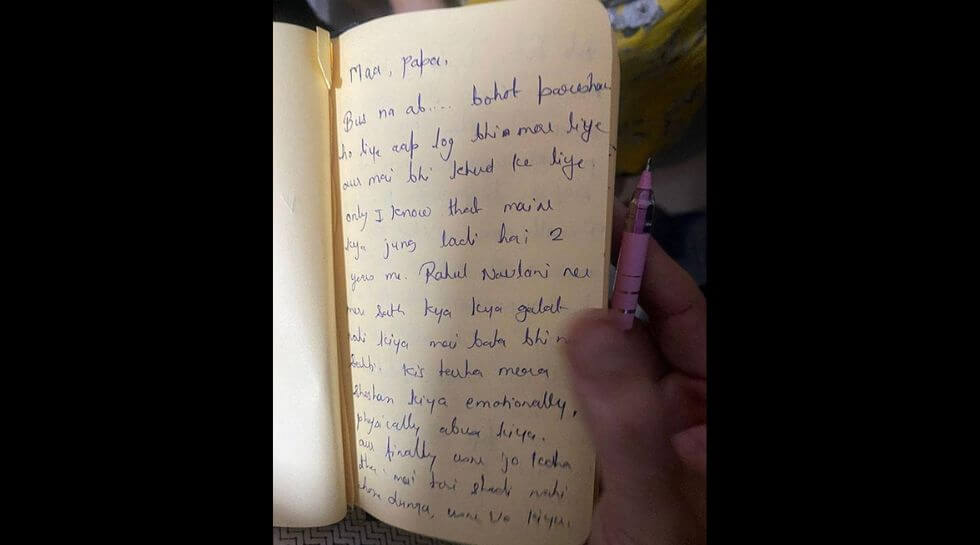 Maa, papa,
Bus na ab.... bohot pareshan
ho liye aap log bhi mere liye
aur mai bhi khud ke liye.
only I know that maine
kya jung ladi hai 2
years me. Rahul Navlani ne
mere sath kya kya galat
nahi kiya mai bata bhi n
sakti. Kis tarha mera
shoshan kiya emotionally,
physically abuse kiya.
aur finally usne jo kaha
tha mai teri shadi nahi
hone dunga, usne vo kiya.